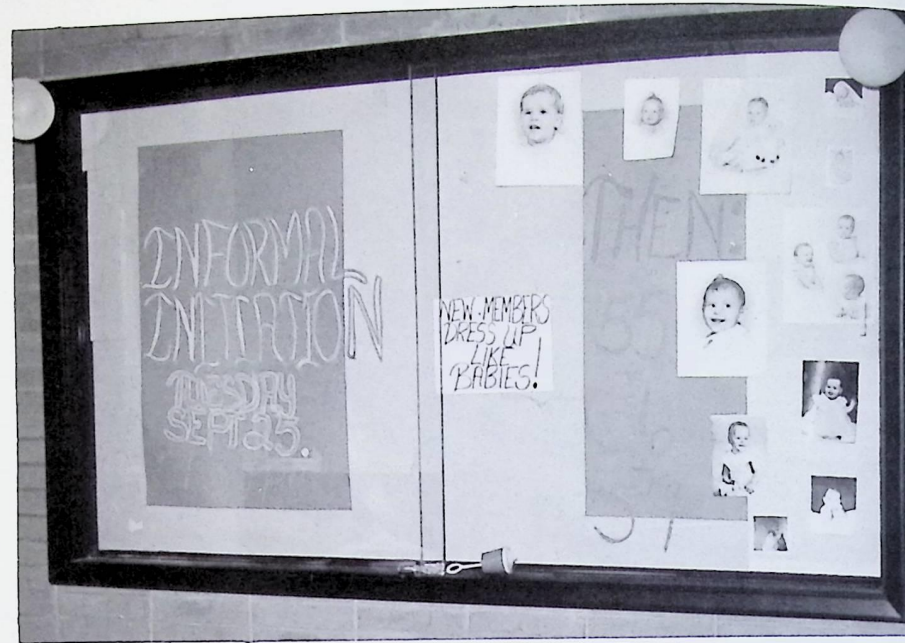 INFORMAL
INITIATION
TUESDAY
SEPT 25.
NEW MEMBERS
DRESS UP
LIKE
BABIES!
THEN